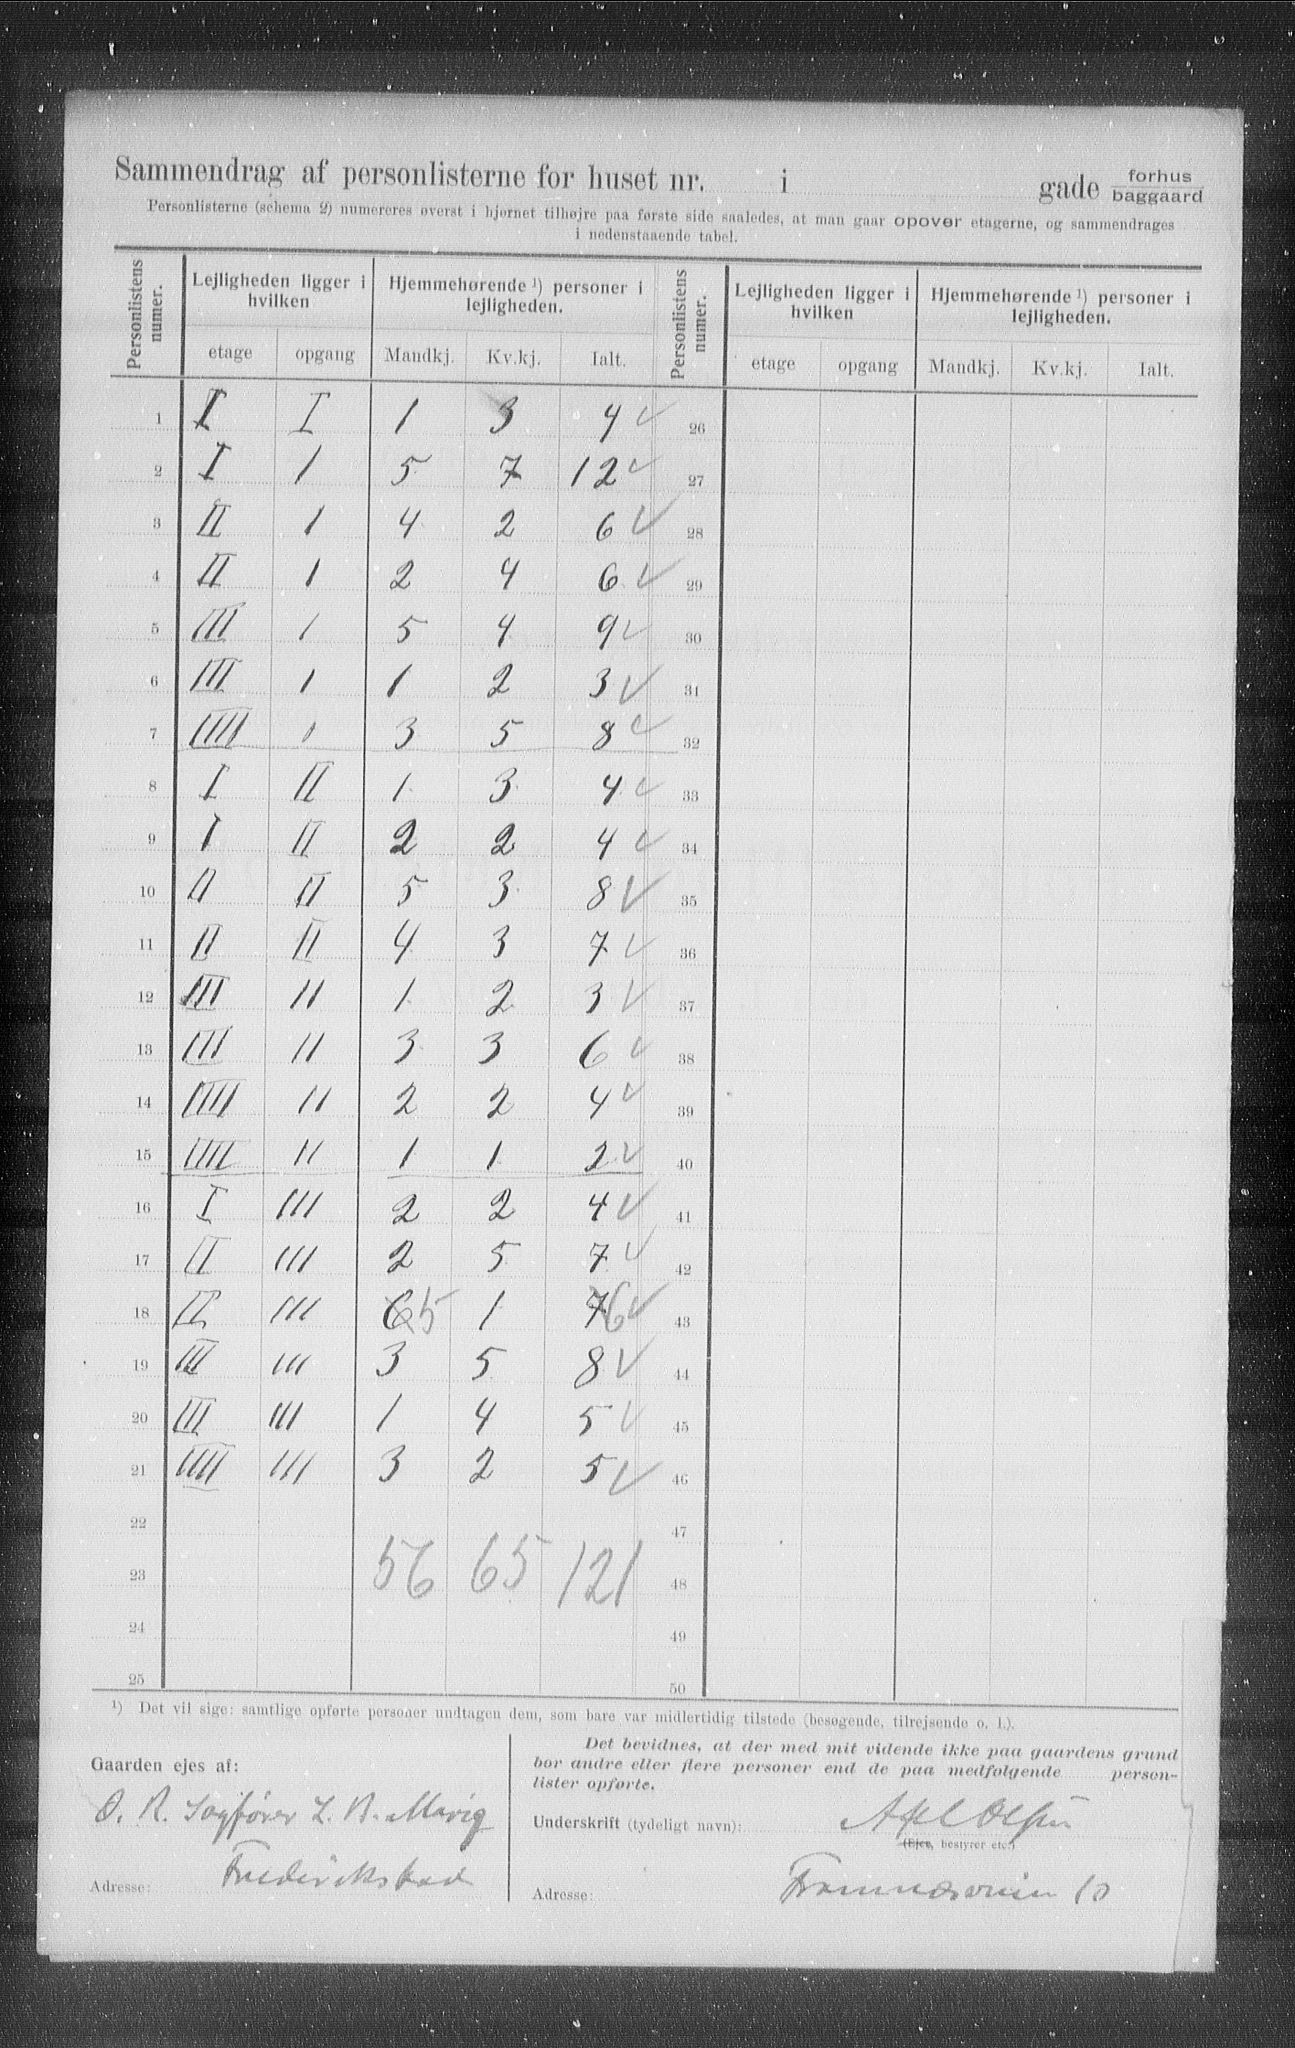 Sammendrag af personlisterne for huset nr. i gade forhus baggaard
Personlisterne (schema 2) numereres øverst i hjørnet tilhøjre paa første side saaledes, at man gaar opover etagerne, og sammendrages
i nedenstaaende tabel.
Personlistens numer. Lejligheden ligger i hvilken Hjemmehørende ¹) personer i lejligheden. Personlistens numer. Lejligheden ligger i hvilken Hjemmehørende ¹) personer i lejligheden.
etage opgang Mandkj. Kv.kj. Ialt. etage opgang Mandkj. Kv.kj. Ialt.
1 I I 1 3 4 ✓ 26
2 I 1 5 7 12 ✓ 27
3 II 1 4 2 6 ✓ 28
4 II 1 2 4 6 ✓ 29
5 III 1 5 4 9 ✓ 30
6 III 1 1 2 3 ✓ 31
7 IIII 1 3 5 8 ✓ 32
8 I II 1 3 4 ✓ 33
9 I II 2 2 4 ✓ 34
10 II II 5 3 8 ✓ 35
11 II II 4 3 7 ✓ 36
12 III II 1 2 3 ✓ 37
13 III II 3 3 6 ✓ 38
14 IIII II 2 2 4 ✓ 39
15 IIII II 1 1 2 ✓ 40
16 I III 2 2 4 ✓ 41
17 II III 2 5 7 ✓ 42
18 II III 6 5 1 7 6 ✓ 43
19 III III 3 5 8 ✓ 44
20 III III 1 4 5 ✓ 45
21 IIII III 3 2 5 ✓ 46
22 47
23 56 65 121 48
24 49
25 50
¹) Det vil sige: samtlige opførte personer undtagen dem, som bare var midlertidig tilstede (besøgende, tilrejsende o. l.).
Gaarden ejes af:
O. R. Sagfører L. B. Marig
Adresse: Frederikstad
Det bevidnes, at der med mit vidende ikke paa gaardens grund
bor andre eller flere personer end de paa medfølgende person-
lister opførte.
Underskrift (tydeligt navn): Axel Olsen
(Ejer, bestyrer etc.)
Adresse: Framnæsveien 10